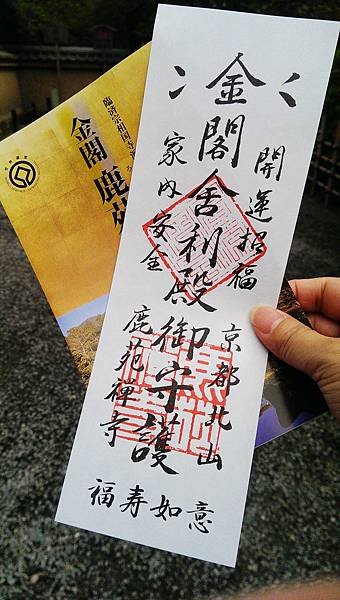 開運招福
金閣舎利殿御守護
家内安全
京都北山
鹿苑禅寺
福寿如意
臨済宗相国寺派
金閣 鹿苑